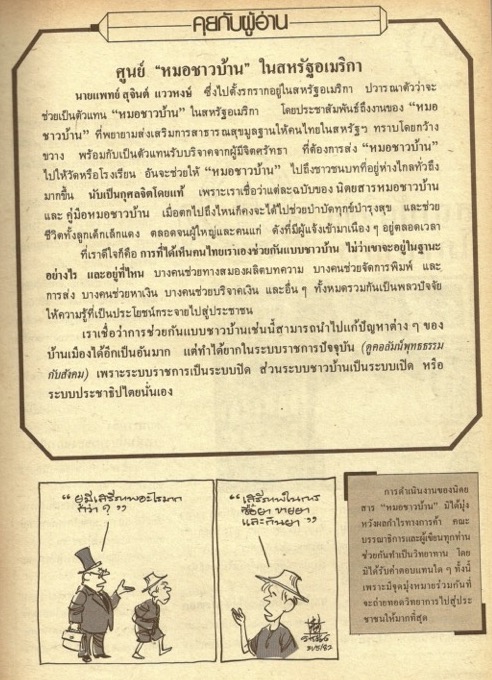 คุยกับผู้อ่าน
ศูนย์ “หมอชาวบ้าน” ในสหรัฐอเมริกา
นายแพทย์ สุจินต์ แววหงษ์ ซึ่งไปตั้งรกรากอยู่ในสหรัฐอเมริกา ปวารณาตัวว่าจะ
ช่วยเป็นตัวแทน “หมอชาวบ้าน” ในสหรัฐอเมริกา โดยประชาสัมพันธ์ถึงงานของ “หมอ
ชาวบ้าน” ที่พยายามส่งเสริมการสาธารณสุขมูลฐานให้คนไทยในสหรัฐฯ ทราบโดยกว้าง
ขวาง พร้อมกับเป็นตัวแทนรับบริจาคจากผู้มีจิตศรัทธา ที่ต้องการส่ง “หมอชาวบ้าน”
ไปให้วัดหรือโรงเรียน อันจะช่วยให้ “หมอชาวบ้าน” ไปถึงชาวชนบทที่อยู่ห่างไกลทั่วถึง
มากขึ้น นับเป็นกุศลจิตโดยแท้ เพราะเราเชื่อว่าแต่ละฉบับของ นิตยสารหมอชาวบ้าน
และ คู่มือหมอชาวบ้าน เมื่อตกไปถึงไหนก็คงจะได้ไปช่วยบำบัดทุกข์บำรุงสุข และช่วย
ชีวิตทั้งลูกเด็กเล็กแดง ตลอดจนผู้ใหญ่และคนแก่ ดังที่มีผู้แจ้งเข้ามาเนือง ๆ อยู่ตลอดเวลา
ที่เราดีใจก็คือ การที่ได้เห็นคนไทยเราเองช่วยกันแบบชาวบ้าน ไม่ว่าเขาจะอยู่ในฐานะ
อย่างไร และอยู่ที่ไหน บางคนช่วยทางสมองผลิตบทความ บางคนช่วยจัดการพิมพ์ และ
การส่ง บางคนช่วยหาเงิน บางคนช่วยบริจาคเงิน และอื่น ๆ ทั้งหมดรวมกันเป็นพลวปัจจัย
ให้ความรู้ที่เป็นประโยชน์กระจายไปสู่ประชาชน
เราเชื่อว่าการช่วยกันแบบชาวบ้านเช่นนี้สามารถนำไปแก้ปัญหาต่าง ๆ ของ
บ้านเมืองได้อีกเป็นอันมาก แต่ทำได้ยากในระบบราชการปัจจุบัน (ดูคอลัมน์พุทธธรรม
กับสังคม) เพราะระบบราชการเป็นระบบปิด ส่วนระบบชาวบ้านเป็นระบบเปิด หรือ
ระบบประชาธิปไตยนั่นเอง
“ยูมีเสรีภาพอะไรมาก
กว่า ? ”
“เสรีภาพในการ
ซื้อยา ขายยา
และกินยา ”
31/5/82
การดำเนินงานของนิตย
สาร “หมอชาวบ้าน” มิได้มุ่ง
หวังผลกำไรทางการค้า คณะ
บรรณาธิการและผู้เขียนทุกท่าน
ช่วยกันทำเป็นวิทยาทาน โดย
มิได้รับค่าตอบแทนใด ๆ ทั้งนี้
เพราะมีจุดมุ่งหมายร่วมกันที่
จะถ่ายทอดวิทยาการไปสู่ประ
ชาชนให้มากที่สุด